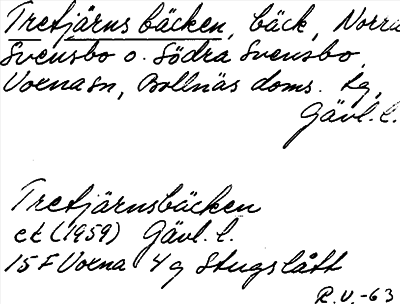 Tretjärnsbäcken, bäck, Norra
Svensbo o. Södra Svensbo,
Voxna sn, Bollnäs doms. lg,
Gävl. l.
Tretjärnsbäcken
ek (1959) Gävl. l.
15 F Voxna 4 g Stugslått
R.V. -63